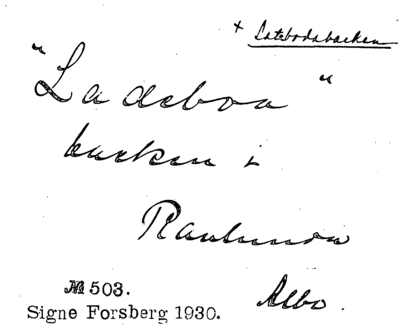 + Latebodabacken
"Ladeboa"
backen i
Ravlunda
Albo.
№ 503.
Signe Forsberg 1930.